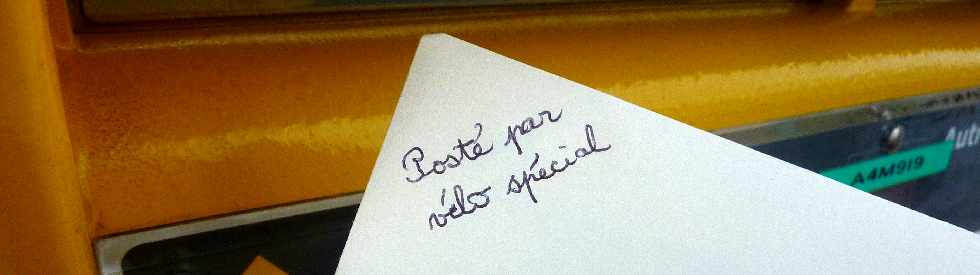 Posté par
vélo spécial
A4M919